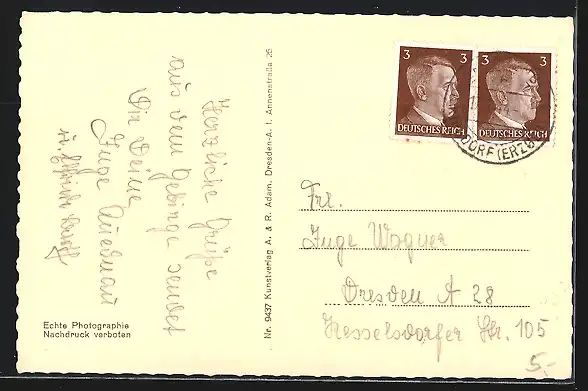 Herzliche Grüße
aus dem Gebirge sendet
Dir Deine
Inge
Echte Photographie
Nachdruck verboten
Nr. 9437 Kunstverlag A. & R. Adam, Dresden-A. 1, Annenstraße 26
3
3
DEUTSCHES REICH
DEUTSCHES REICH
DORF (ERZGEB
Frl.
Inge Wagner
Dresden A 28
Kesselsdorfer Str. 105
5.-